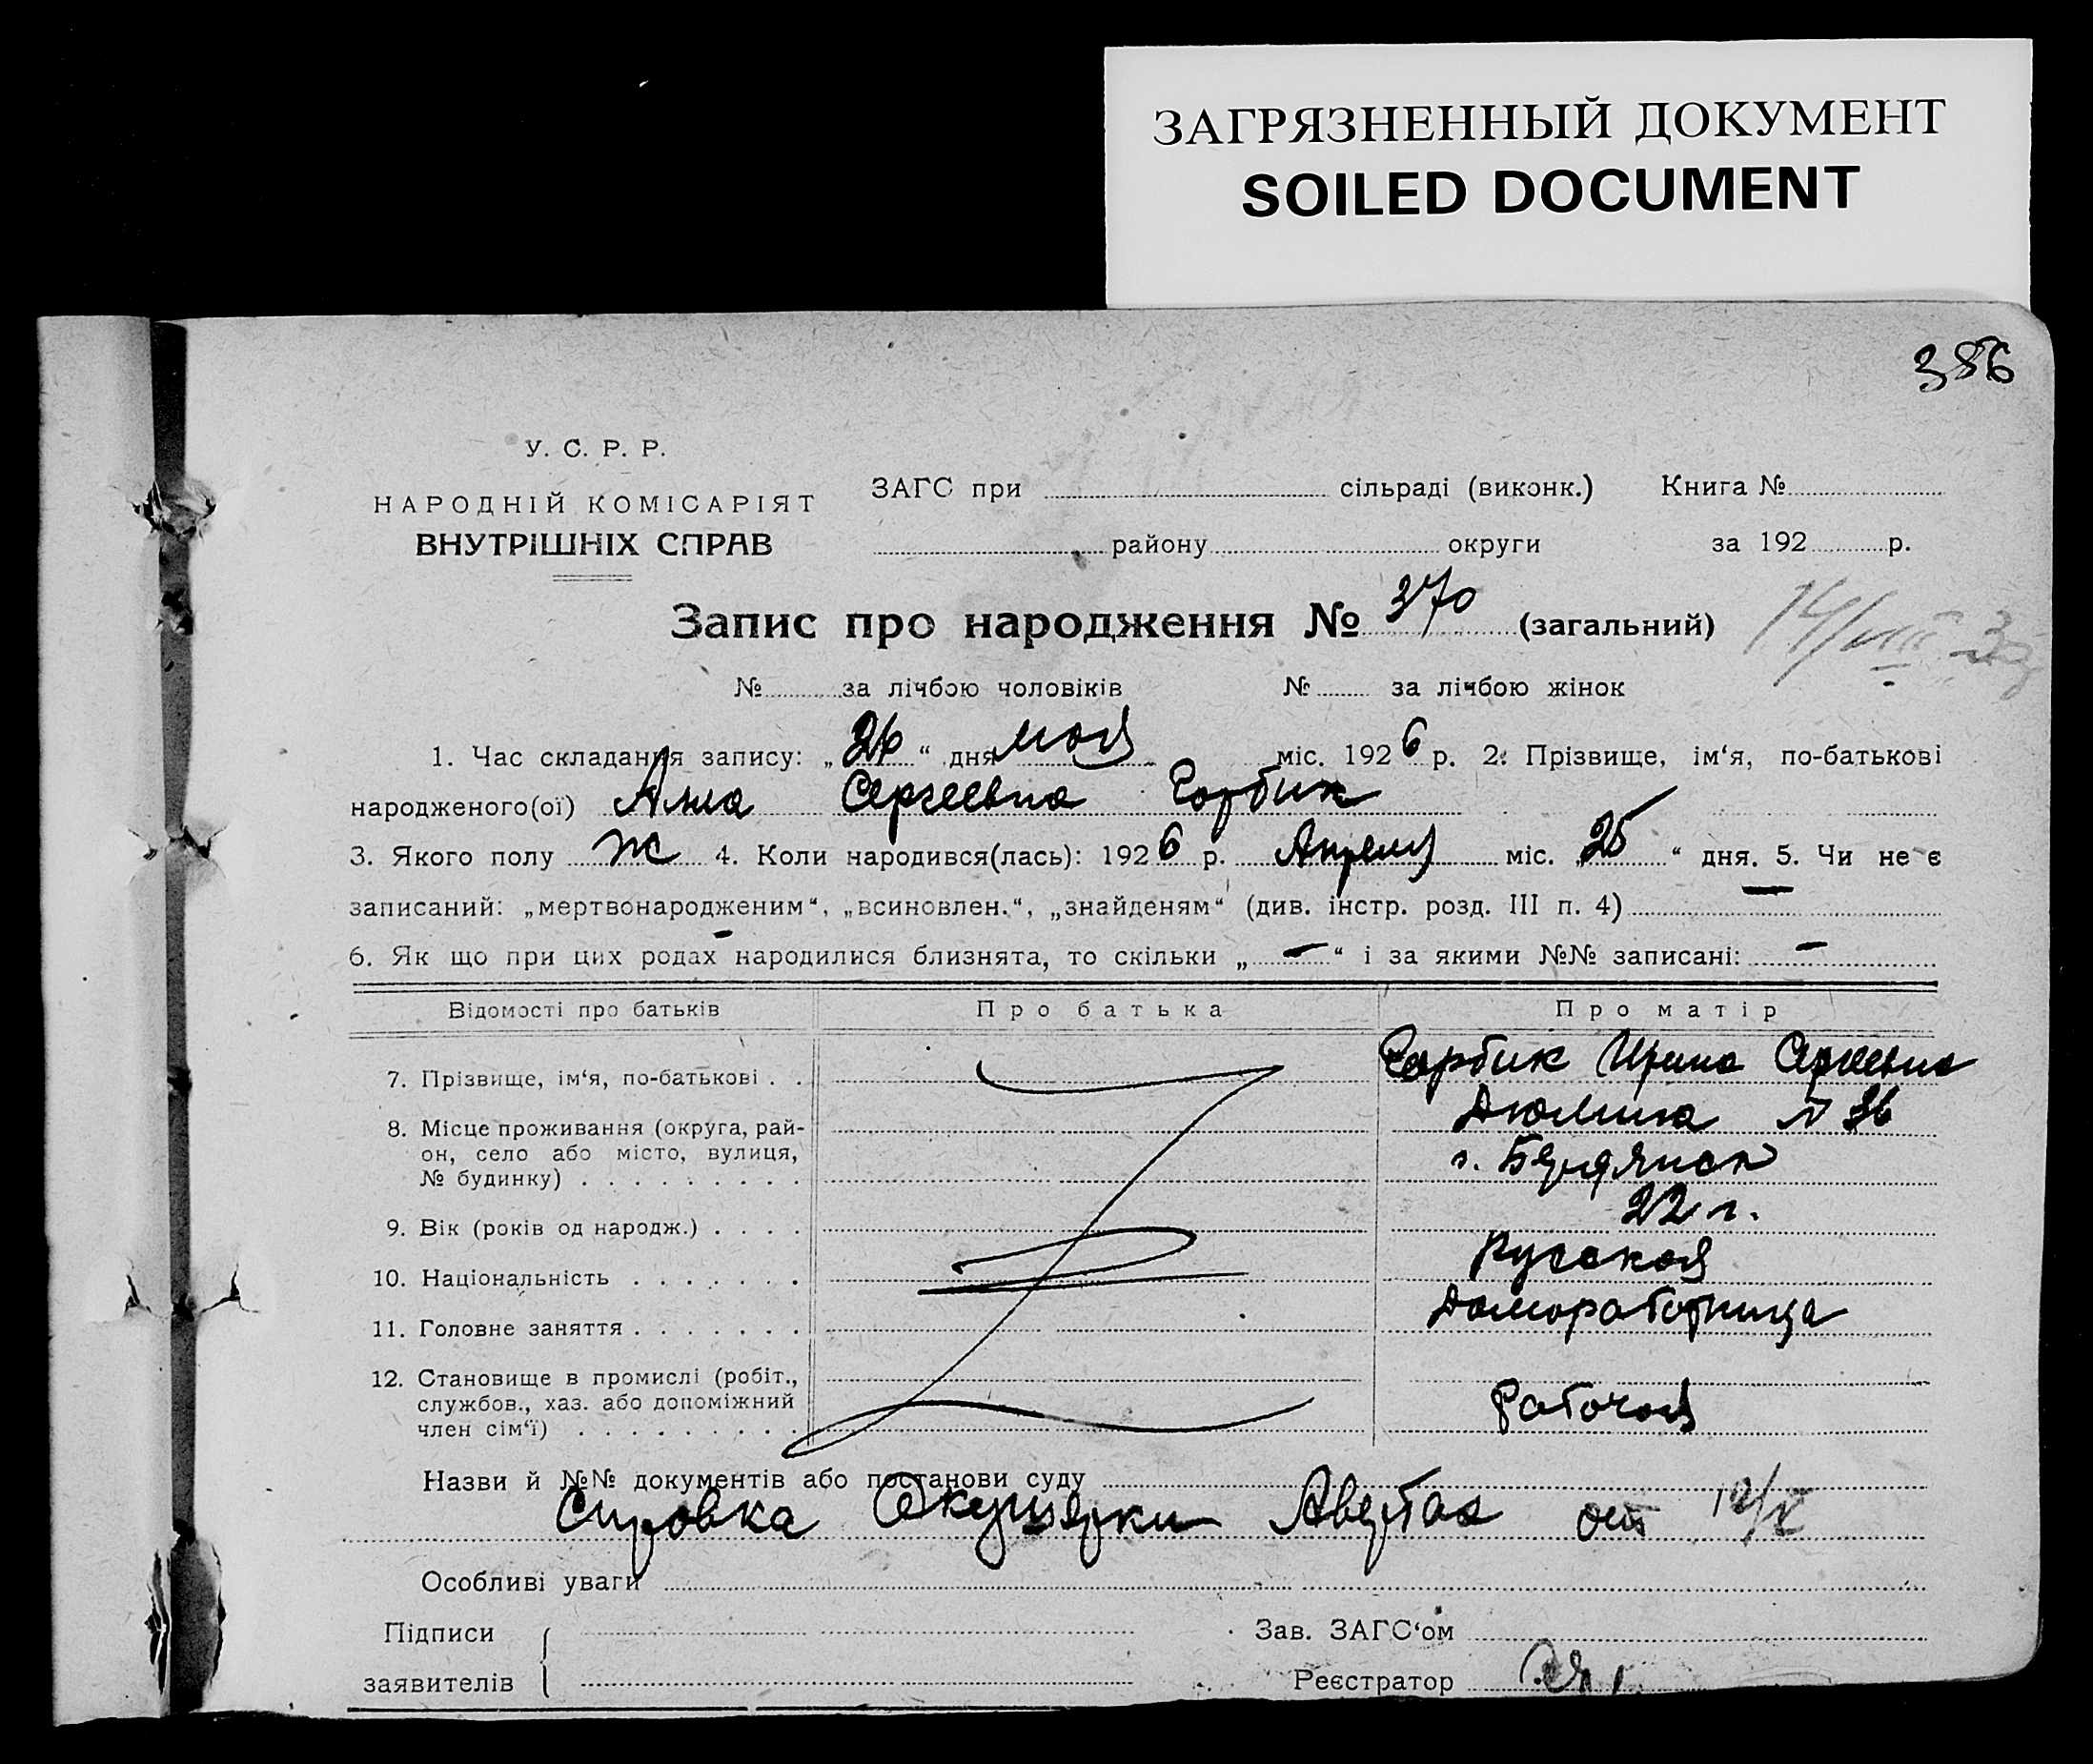 ЗАГРЯЗНЕННЫЙ ДОКУМЕНТ
SOILED DOCUMENT
386
У. С. Р. Р.
НАРОДНІЙ КОМІСАРІЯТ
ВНУТРІШНІХ СПРАВ
ЗАГС при сільраді (виконк.) Книга №
району округи за 192 р.
Запис про народження № 370 (загальний)
14/VIII
№ за лічбою чоловіків № за лічбою жінок
1. Час складання запису: „26“ дня мая міс. 1926 р. 2. Прізвище, ім‘я, по-батькові
народженого(ої) Анна Сергеевна Горбик
3. Якого полу ж 4. Коли народився(лась): 1926 р. Апреля міс. „25“ дня. 5. Чи не є
записаний: „мертвонародженим“, „всиновлен.“, „знайденям“ (див. інстр. розд. III п. 4) —
6. Як що при цих родах народилися близнята, то скільки „—“ і за якими №№ записані: —
Відомості про батьків Про батька Про матір
7. Прізвище, ім‘я, по-батькові . . Горбик Ирина Сергеевна
8. Місце проживання (округа, рай- Дюмина № 36
он, село або місто, вулиця, г. Бердянск
№ будинку) . . . . . . . . .
9. Вік (років од народж.) . . . . 22 г.
10. Національність . . . . . . . Русская
11. Головне заняття . . . . . . . Домработница
12. Становище в промислі (робіт.,
службов., хаз. або допоміжний Рабочая
член сім‘ї) . . . . . . . . .
Назви й №№ документів або постанови суду
Справка Окушерки от 12/V
Особливі уваги
Підписи Зав. ЗАГС‘ом
заявителів Реєстратор